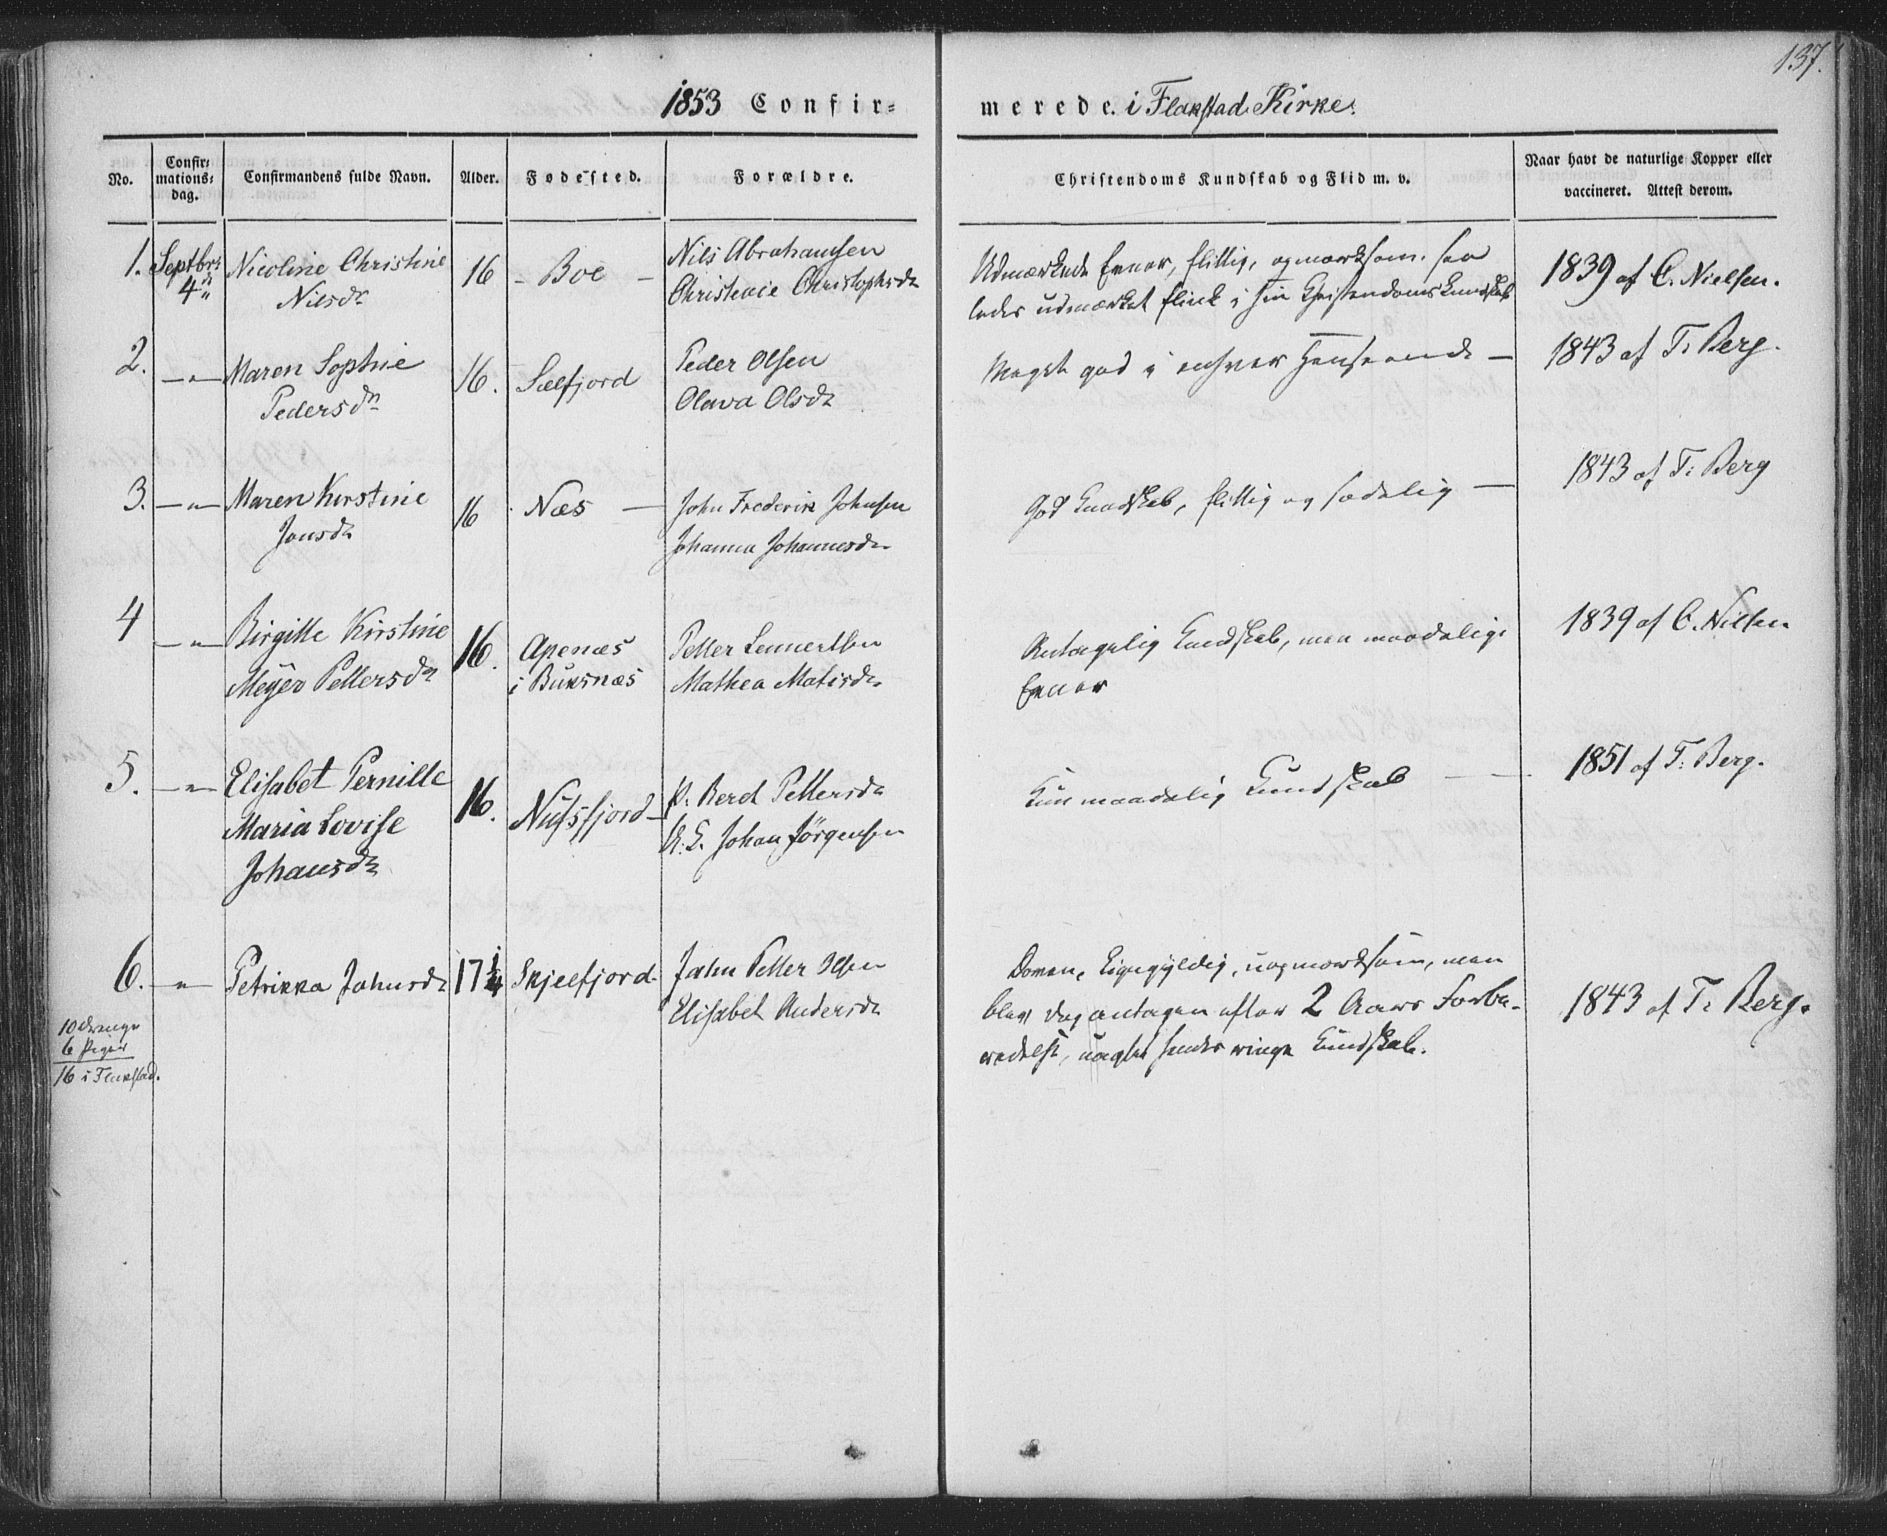 137.
1853 Confir=
merede. i Flakstad Kirke.
No.
Confir=
mations=
dag.
Confirmandens fulde Navn.
Alder.
Fødested.
Forældre.
Christendoms Kundskab og Flid m. v.
Naar havt de naturlige Kopper eller
vaccineret. Attest derom.
1. Septbr: 4de Nicoline Christine 16 - Boe - Nils Abrahamsen
Nilsdr Christencie Christophsdr
Udmærkede Evner, flittig, opmærksom. saa
ledes udmærket flink i sin Christendomskundskab
1839 af C. Nielsen.
2. —"— Maren Sophie 16. Sælfjord Peder Olsen
Pedersdr Olava Olsdr
Meget god i enhver Henseende —
1843 af T. Berg.
3. —"— Maren Kirstine 16 Næs — John Frederik Johnsen
Jonsdr Johanna Johannesdr
God Kundskab, flittig og sædelig —
1843 af T: Berg
4 —"— Birgitte Kirstine 16. Apenæs Petter Lennertsen
Meyer Pettersdr i Buksnæs Mathea Matisdr
Antagelig Kundskab, men maadelige
Evner
1839 af C. Nielsen
5. —"— Elisabet Pernille 16. Nusfjord — P. Beret Pettersdr
Maria Lovise Johan Jørgensen
Johansdr
Kun maadelig Kundskab — —
1851 af T: Berg.
6. —"— Petrikka Johnsdr 17 1/4 Skjelfjord. John Petter Olsen
Elisabet Andersdr
Doven, ligegyldig, uopmærksom, men
blev dog antagen efter 2 Aars Forbe-
redelse, uagtet hendes ringe Kundskab.
1843 af T: Berg.
10 Drenge
6 Piger
16 i Flakstad.